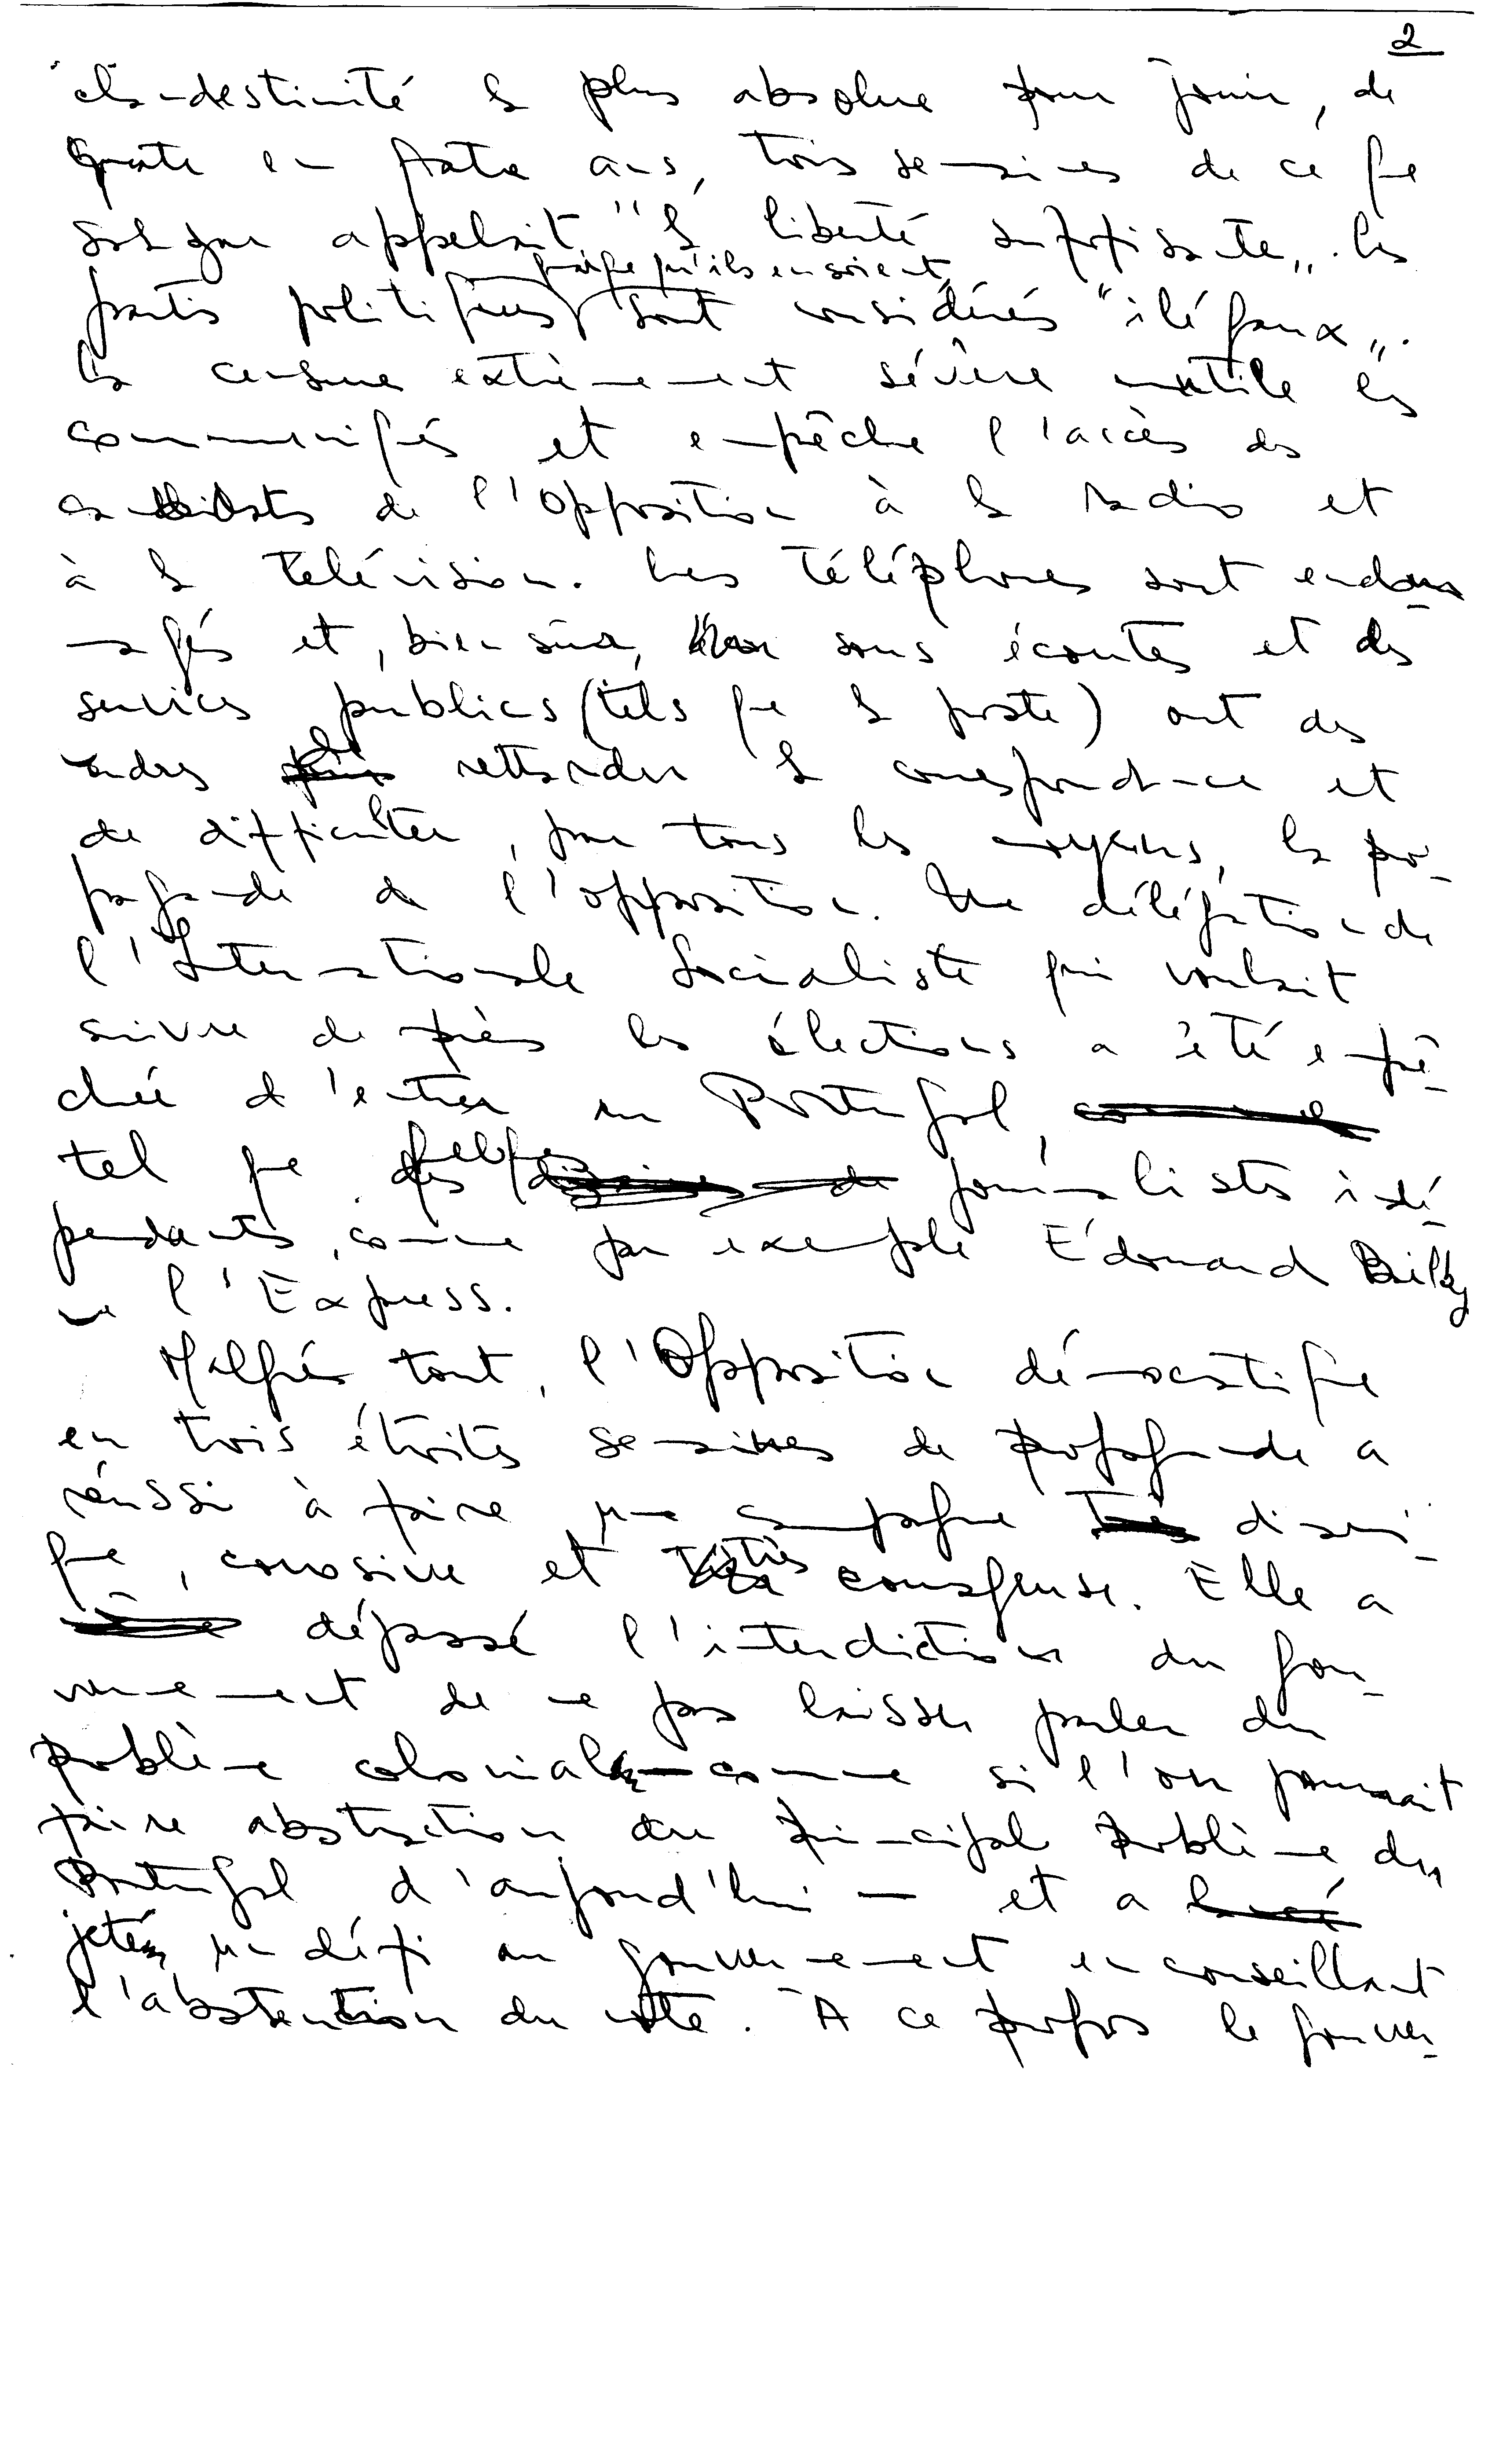 2
clandestinité la plus absolue pour jouir, de
quatre en quatre ans, trois semaines de ce que
Salazar appelait "la liberté suffisante„. Les
quoiqu'ils en soient
partis politiques sont considérés "iléganx„.
La censure extrêmement sévère mutile les
communiqués et empêche l'accès des
candidats de l'Opposition à la radio et
à la télévision. Les téléphones sont endom-
magés et, bien sûr, sous écoutes et des
services publics (tels que la poste) ont des
ordres de rettarder la correspondance et
de difficulter, par tous les moyens, la pro-
pagande de l'opposition. Une délégation de
l'Internationale Socialiste qui voulait
suivre de près les élections a été empê-
chée d'entrer au Portugal,
tel que quelques journalistes indé-
pendants, comme par exemple Édouard Bailby
de l'Express.
Malgré tout, l'Opposition démocratique
en trois étroites semaines de propagande a
réussi à faire une campagne
et très courageuse. Elle a
dépassé l'interdiction du gou-
vernement de ne pas laisser parler du
problème colonial — comme si l'on pouvait
faire abstraction du principal problème du
Portugal d'aujourd'hui — et a
jeté un défi au gouvernement en conseillant
l'abstention du vote. A ce propos le gouver-